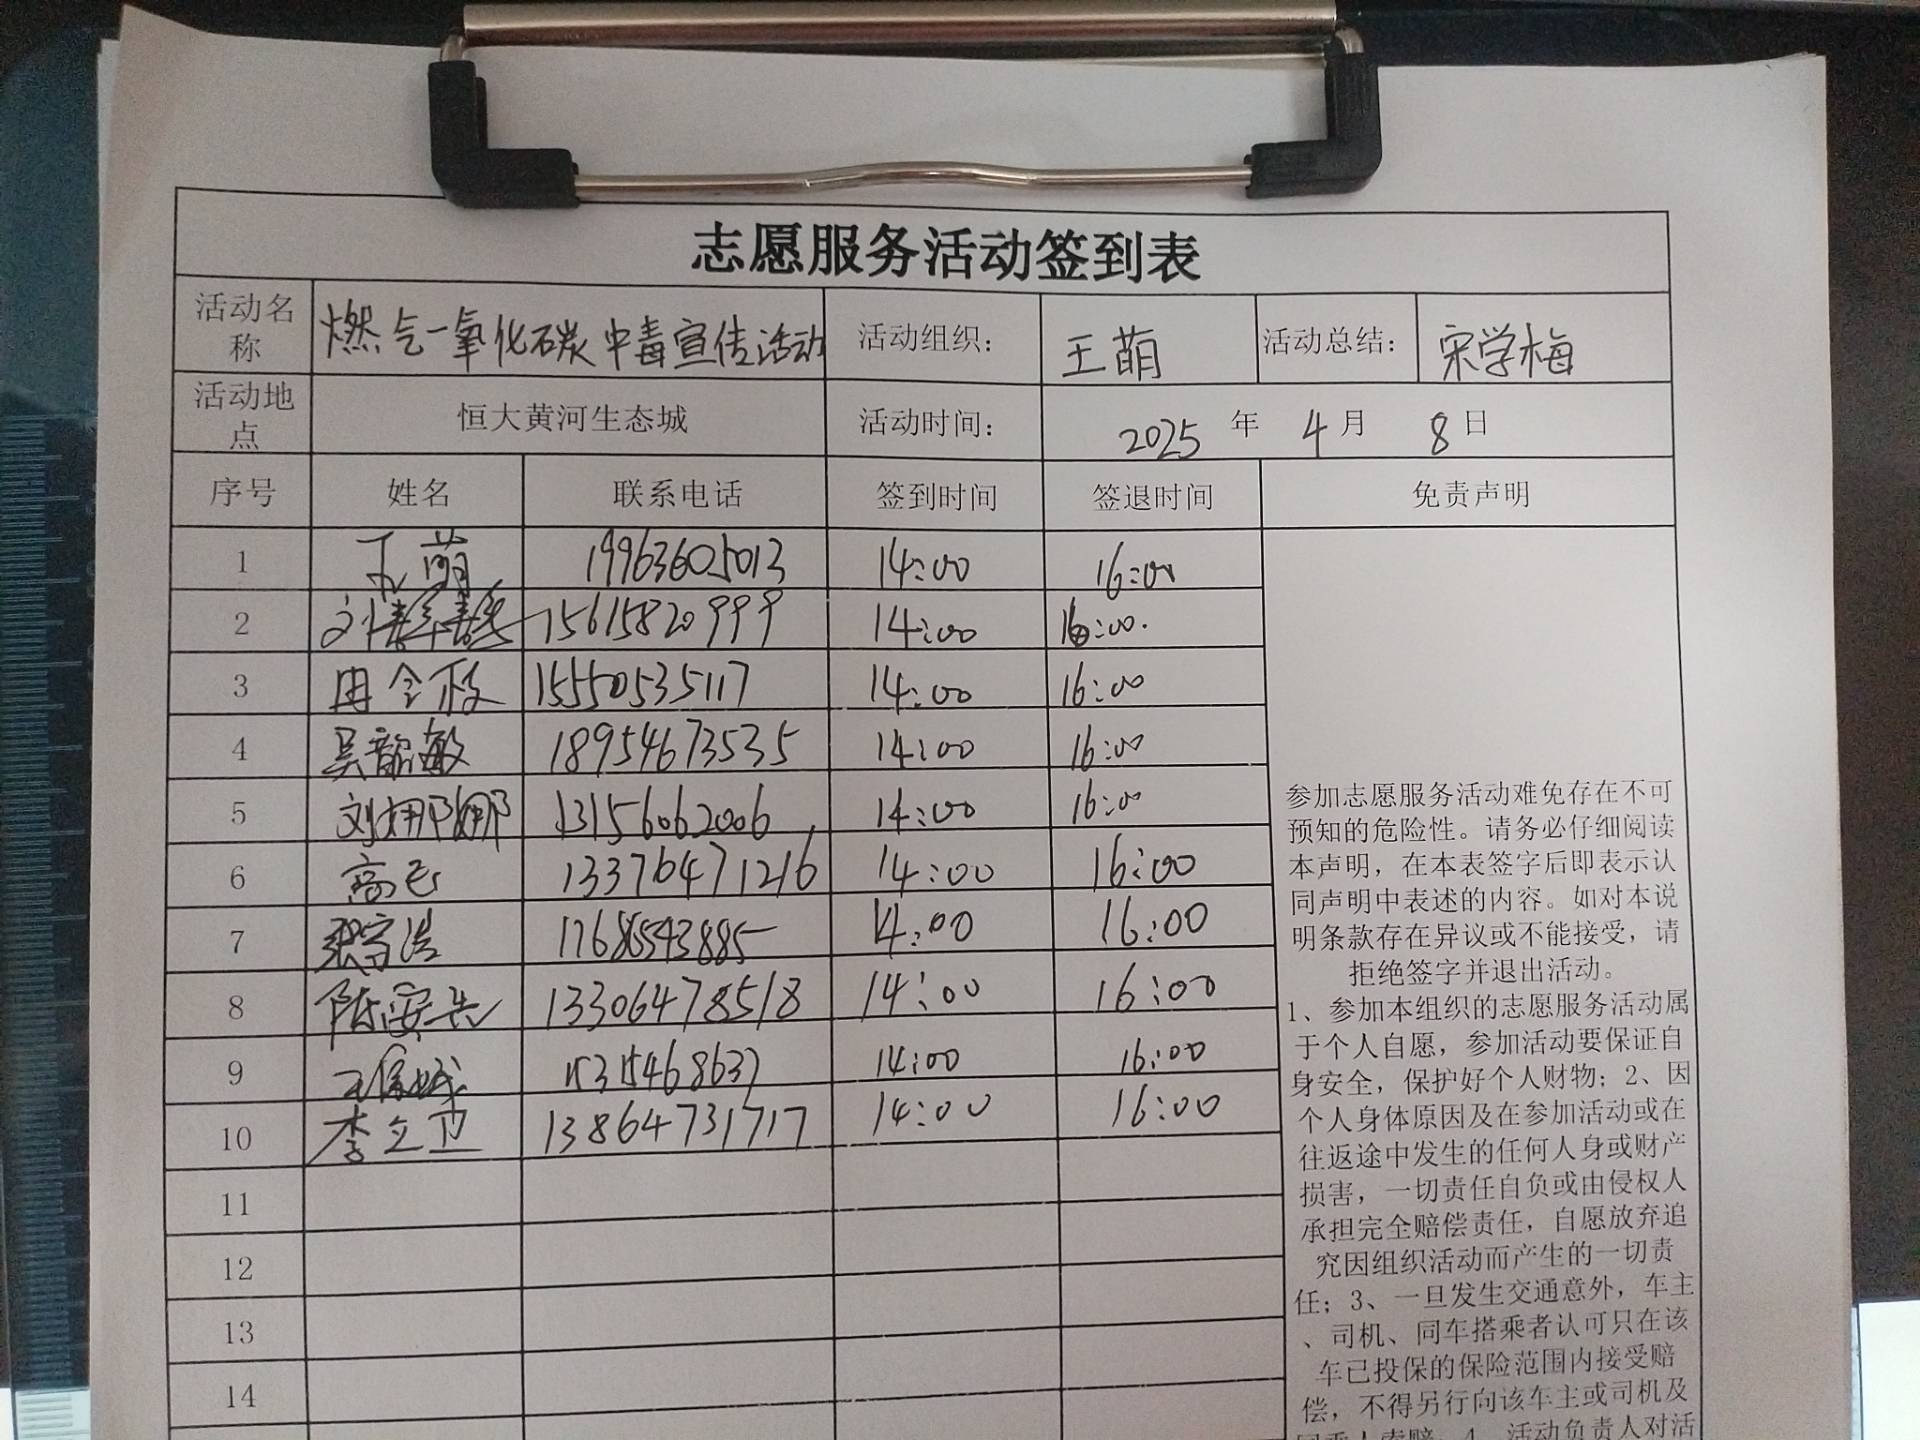 志愿服务活动签到表
活动名称 燃气一氧化碳中毒宣传活动 活动组织: 王萌 活动总结: 宋学梅
活动地点 恒大黄河生态城 活动时间: 2025 年 4 月 8 日
序号 姓名 联系电话 签到时间 签退时间 免责声明
1 王萌 19963605013 14:00 16:00
2 15615820999 14:00 16:00.
3 15550535117 14:00 16:00
4 吴韶敏 18954673535 14:00 16:00
5 刘娜娜 13156062006 14:00 16:00
6 高飞 13376471216 14:00 16:00
7 14:00 16:00
8 陈安兵 13306478518 14:00 16:00
9 14:00 16:00
10 李立卫 13864731717 14:00 16:00
11
12
13
14
参加志愿服务活动难免存在不可
预知的危险性。请务必仔细阅读
本声明，在本表签字后即表示认
同声明中表述的内容。如对本说
明条款存在异议或不能接受，请
拒绝签字并退出活动。
1、参加本组织的志愿服务活动属
于个人自愿，参加活动要保证自
身安全，保护好个人财物；2、因
个人身体原因及在参加活动或在
往返途中发生的任何人身或财产
损害，一切责任自负或由侵权人
承担完全赔偿责任，自愿放弃追
究因组织活动而产生的一切责
任；3、一旦发生交通意外，车主
、司机、同车搭乘者认可只在该
车已投保的保险范围内接受赔
偿，不得另行向该车主或司机及
4、活动负责人对活